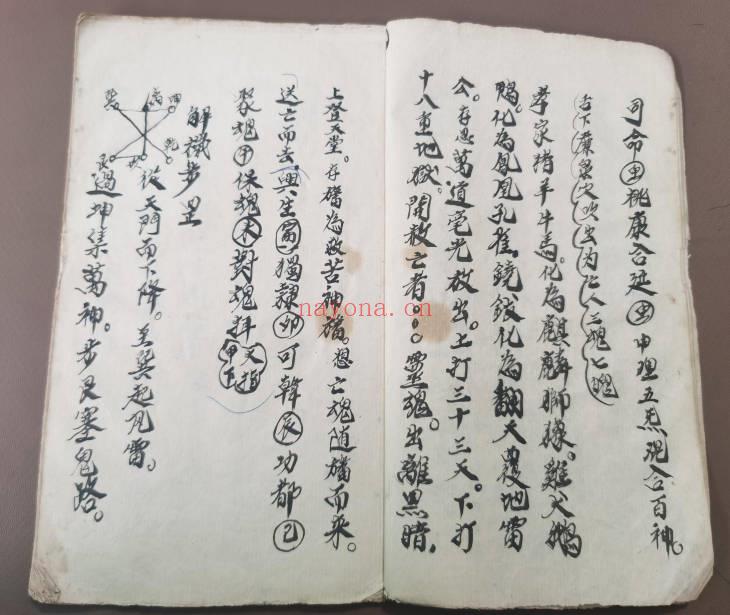 司命 桃康合延 中理五炁混合百神。
三魂七魄
孝家猪羊牛馬。化為麒麟獅樣。雞犬鵝
鴨。化為鳳凰孔雀。鏡鈸化為翻天覆地雷
公。存思萬道毫光放出。上打三十三天。下打
十八重地獄。開救亡者。〇〇靈魂。出離黑暗,
上登天堂。存旛為救苦神旛。想亡魂隨旛而來。
送亡而去,興生 獨隸卯可韓辰功都巳
聚魂 保魂未對魂
解穢步罡
從天門而下降。至巽起風雷。
過坤集萬神。步艮塞鬼路。
nayona.cn